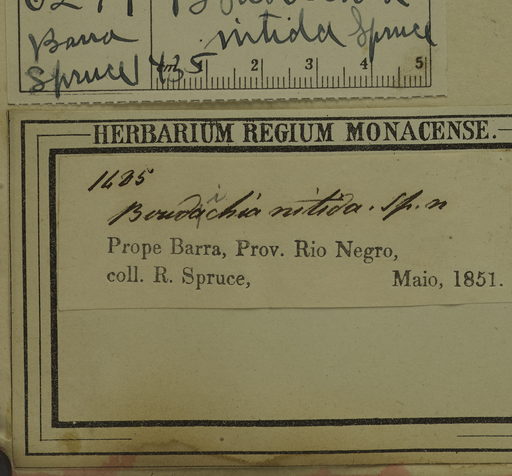 Barra nitida Spruce
Spruce 435
cm 2 3 4 5
HERBARIUM REGIUM MONACENSE.
1485
Bowdichia nitida. sp. n
Prope Barra, Prov. Rio Negro,
coll. R. Spruce, Maio, 1851.